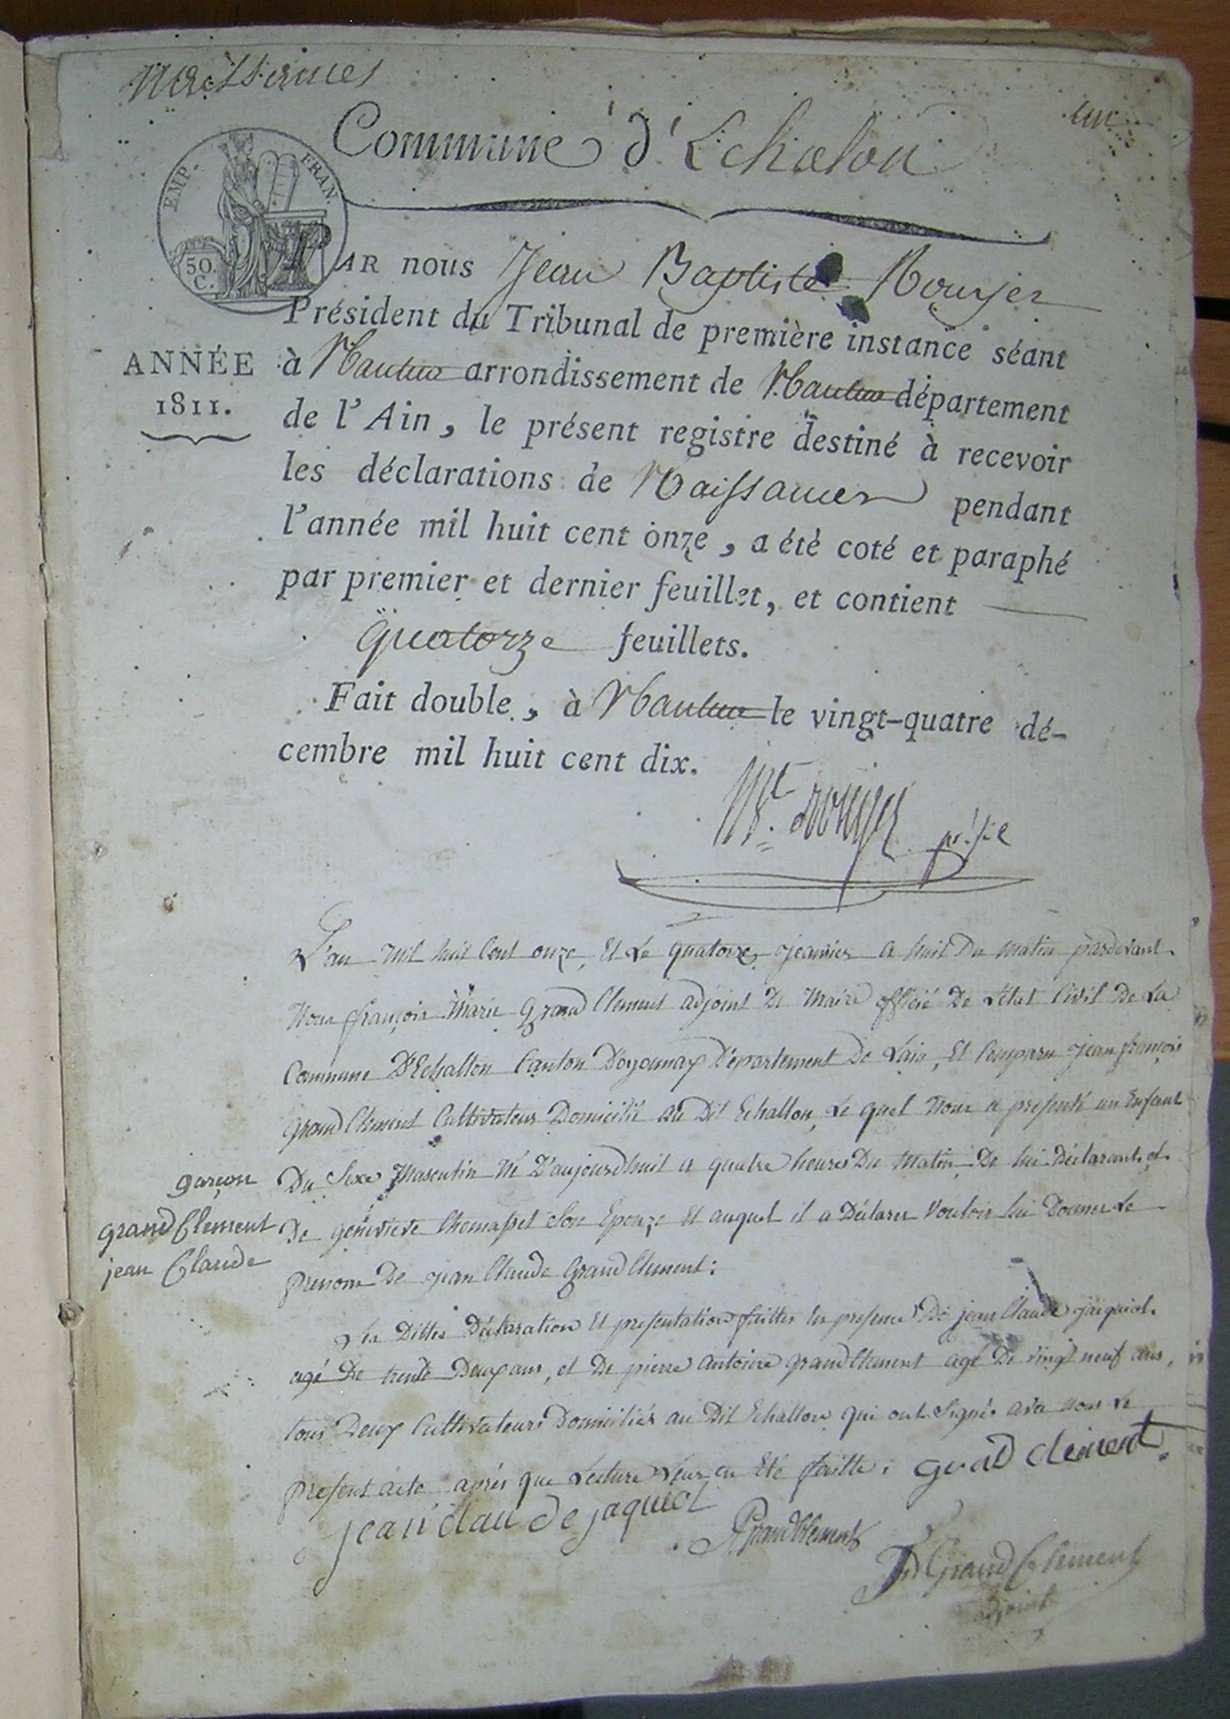 Commune d'Echalon
EMP. FRAN.
50. C.
PAR nous Jean Baptiste Rouyer
Président du Tribunal de première instance séant
ANNÉE
1811.
à Nantua arrondissement de Nantua département
de l'Ain, le présent registre destiné à recevoir
les déclarations de Naissances pendant
l'année mil huit cent onze, a été coté et paraphé
par premier et dernier feuillet, et contient
Quatorze feuillets.
Fait double, à Nantua le vingt-quatre dé-
cembre mil huit cent dix.
L'an mil huit Cent onze, Et Le quatorze janvier a huit Du matin pardevant
Nous françois Marie Grand Clement adjoint De Maire officié De L'état Civil De La
Commune D'Echallon Canton D'oyonnax Département De Lain, Et Comparu jean françois
grand Clement Cultivateur Domicilié au Dit Echallon, Le quel Nous a presenté un Enfant
Du Sexe Masculin né D'aujourd'huit a quatre heures Du Matin De lui Déclarant et
garçon
grand Clement
jean Claude
De genevieve Chomasset Son Epouze Et auquel il a Déclarer Vouloir lui Donner Le
prenom De jean Claude Grand Clement:
Les Dittes Déclaration Et presentation faittes En presence De jean Claude jaquiot
agé De trente Deux ans, et De pierre antoine grand Clement agé De vingt neuf ans,
tous Deux Cultivateurs Domiciliés au Dit Echallon qui ont Signés avec nous Le
present acte après que Lecture Leur en Eté faitte: grand clement
jean claude jaquiot
PGrandClement
GrandClement
adjoint